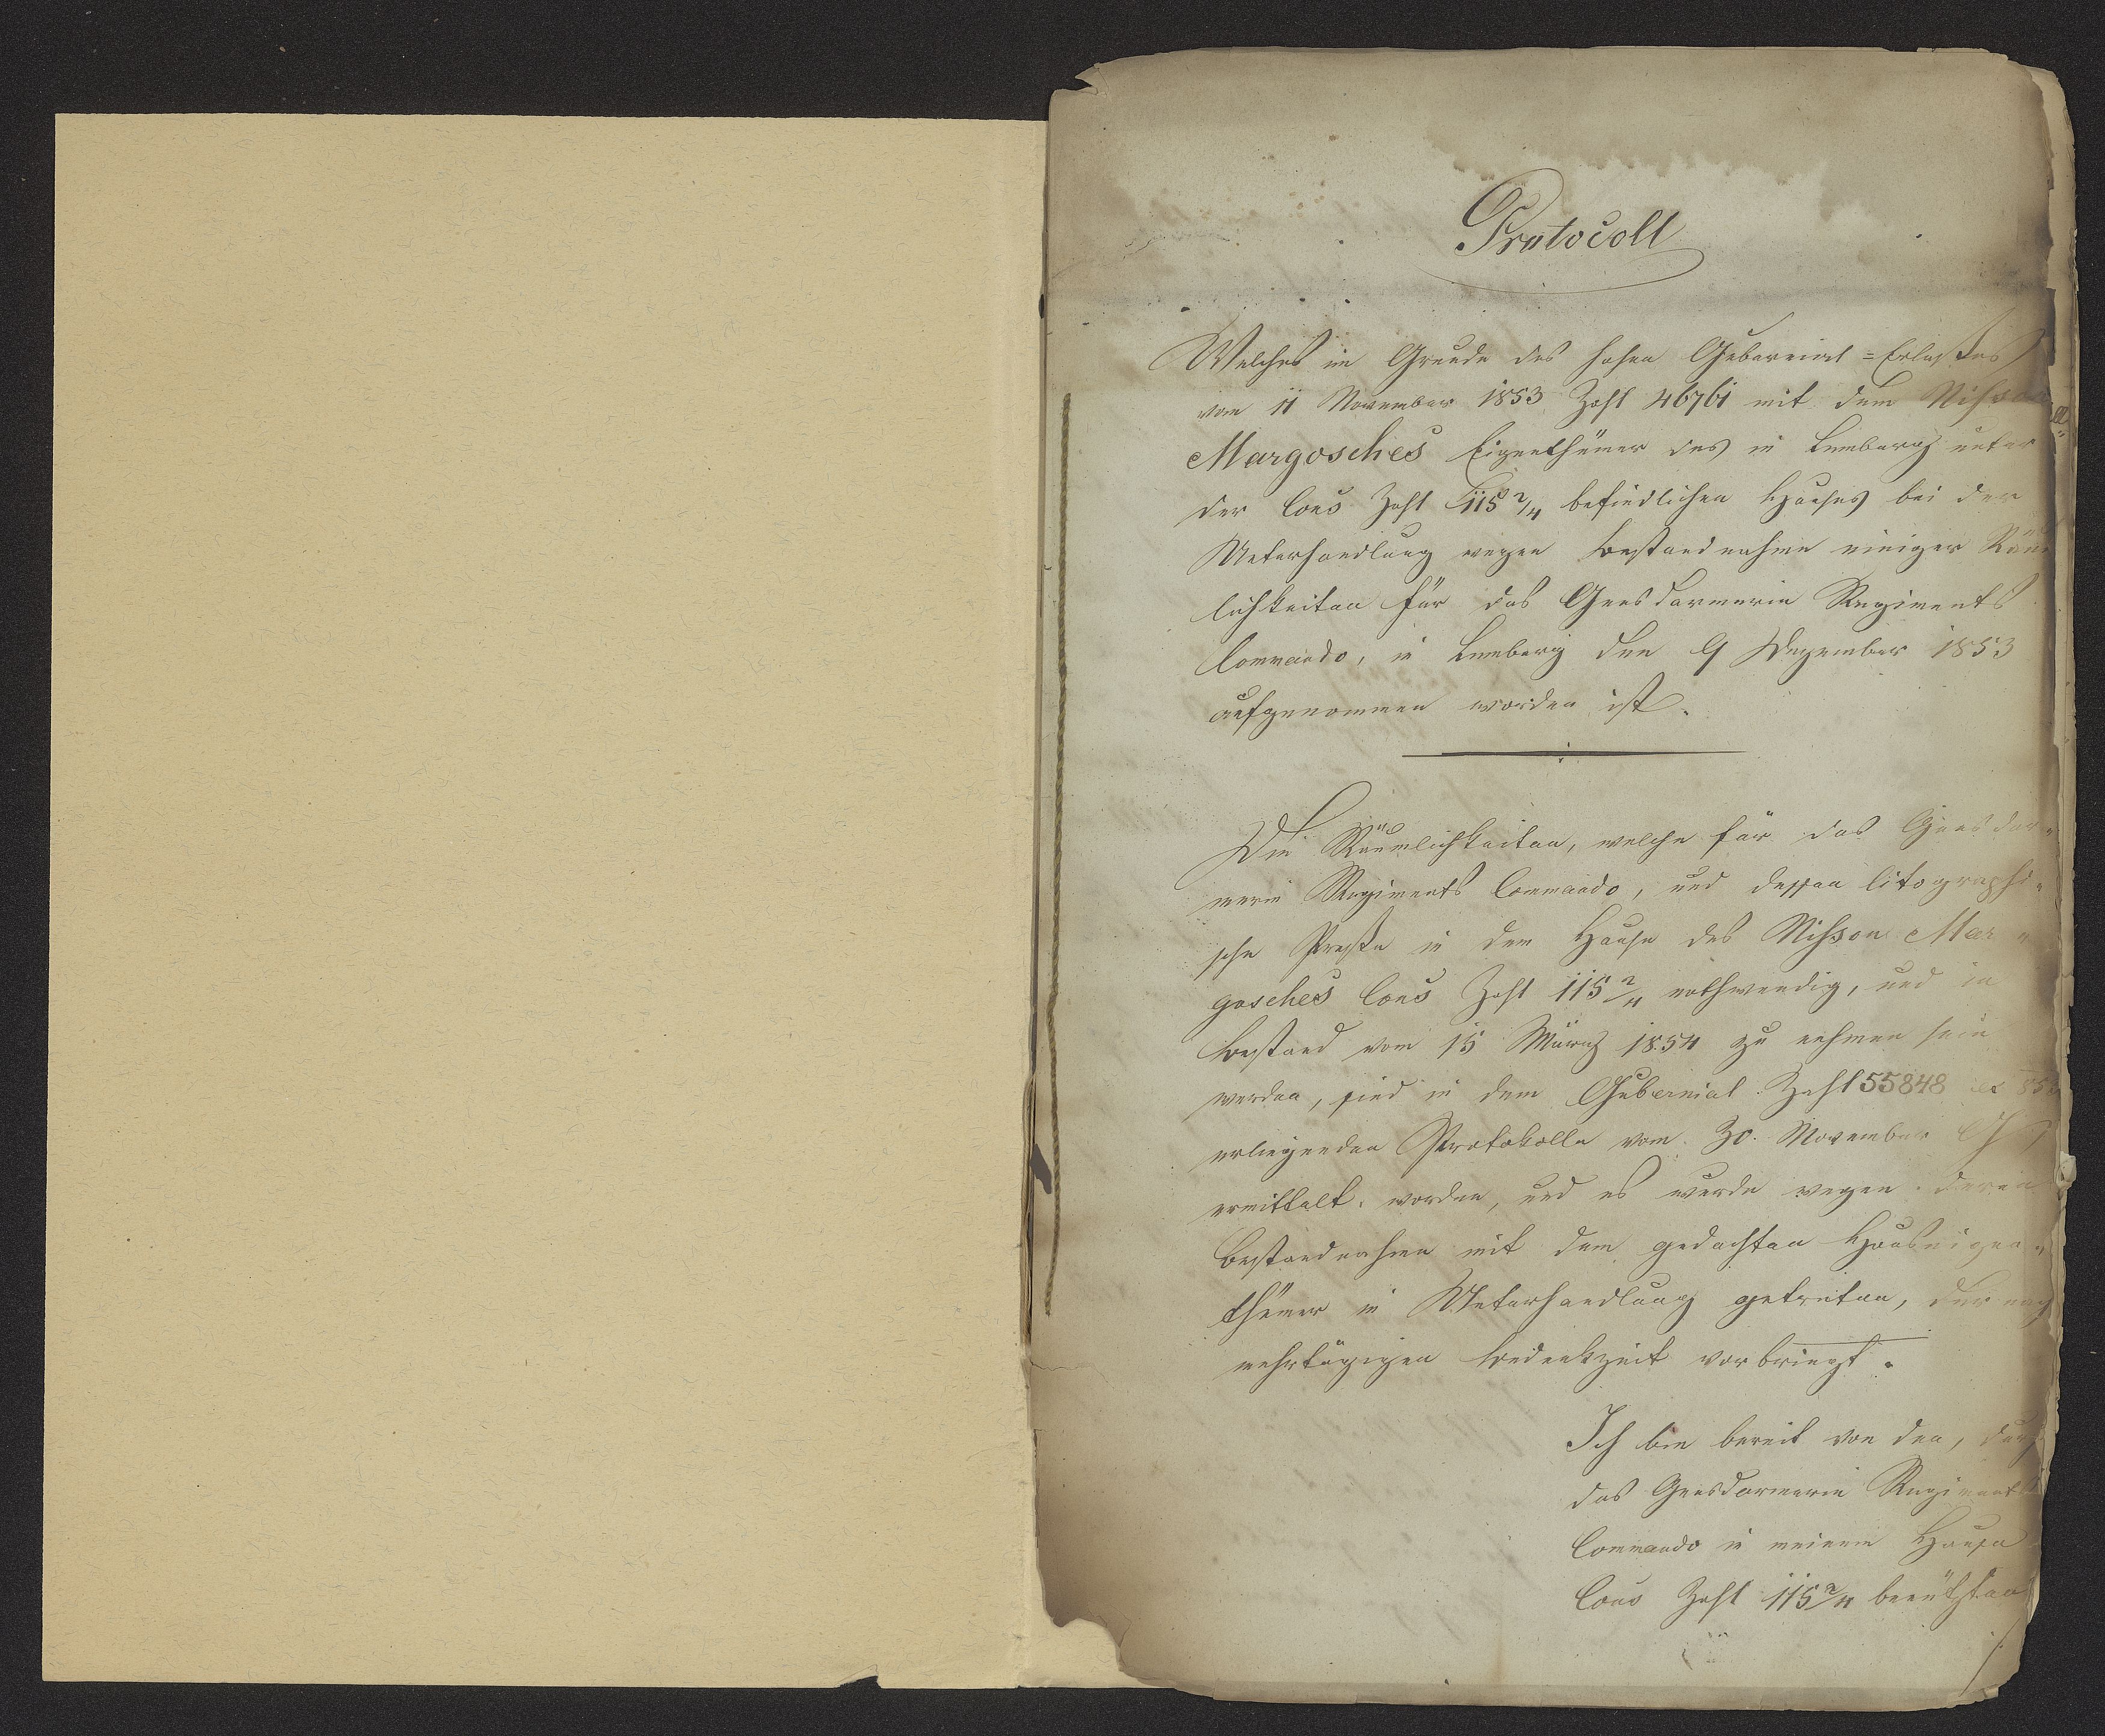 Protocoll
Welches im Grunde des hohen Gubernial=Erlaßes
vom 11 November 1853 Zahl 46761 mit dem
Margosches Eigenthümer des in Lemberg unter
der Cons Zahl 115 2/4 befindlichen Hauses bei der
Unterhandlung wegen Bestandnahme einiger Räu
lichkeiten für das Gensdarmerie Regiments
Commando, in Lemberg den 9 Dezember 1853
aufgenommen worden ist.
Die Räumlichkeiten, welche für das Gensdar-
merie Regiments Commando, und dessen litographi-
sche Preße in dem Hause des Nißon Mar-
gosches Cons Zahl 115 2/4 nothwendig, und in
Bestand vom 15 März 1854 zu nehmen sein
werden, sind in dem Gubernial Zahl 55848
erliegenden Protokolle vom 30. November
ermittelt worden, und es wurde wegen deren
Bestandnahme mit dem gedachten Hauseigen-
thümer in Unterhandlung getreten, der nach
mehrtägigen Bedenkzeit vorbringt.
Ich bin bereit von den, durch
das Gensdarmerie Regiments
Commando in meinem Hause
Cons Zahl 115 2/4 benützten